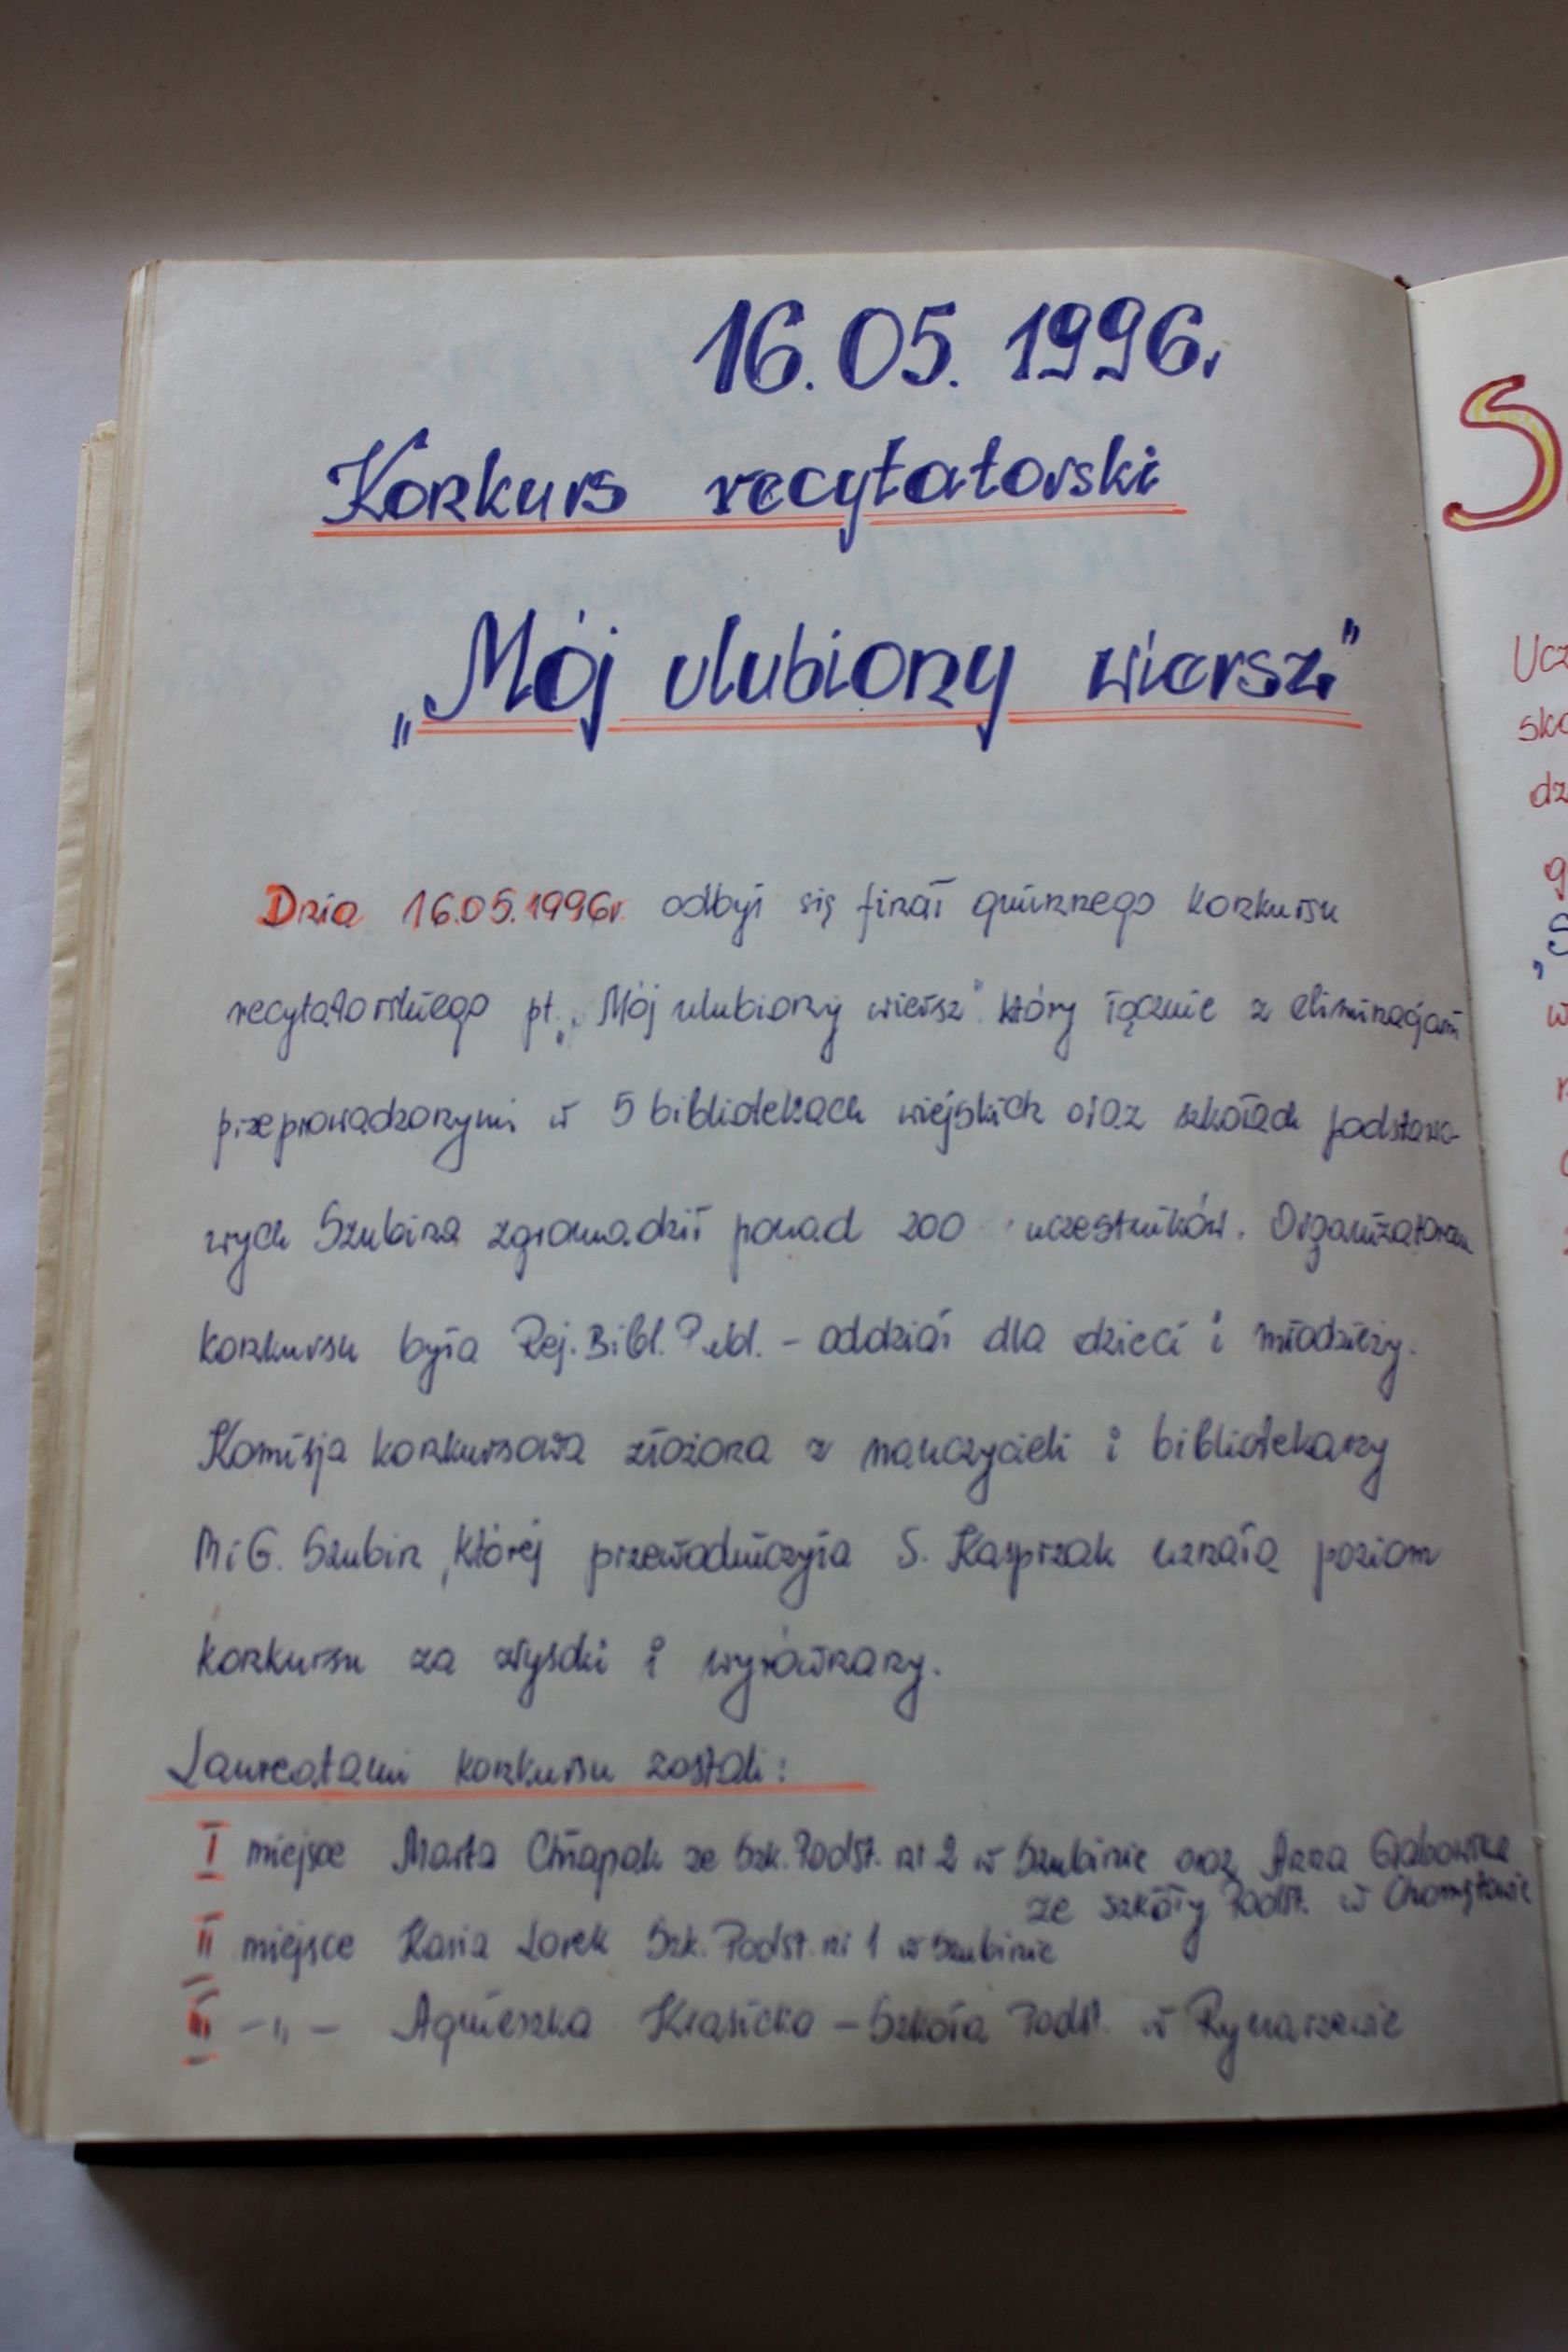 16.05.1996r
Konkurs recytatorski
„Mój ulubiony wiersz"
Dnia 16.05.1996r. odbył się finał gminnego konkursu
recytatorskiego pt. „Mój ulubiony wiersz" który łącznie z eliminacjami
przeprowadzonymi w 5 bibliotekach wiejskich oraz szkołach podstawo-
wych Szubina zgromadził ponad 200 uczestników. Organizatorem
konkursu była Rej. Bibl. Publ. - oddział dla dzieci i młodzieży.
Komisja konkursowa złożona z nauczycieli i bibliotekarzy
MiG. Szubin, której przewodniczyła S. Kasprzak uznała poziom
konkursu za wysoki i wyrównany.
Laureatami konkursu zostali:
I miejsce Marta Chłapak ze Szk. Podst. nr 2 w Szubinie oraz Anna Grabowska
ze szkoły Podst. w Chomętowie
II miejsce Kasia Lorek Szk. Podst. nr 1 w Szubinie
III -„- Agnieszka Krasicka - Szkoła Podst. w Rynarzewie
S
Ucz
sko
dz
g
„S
w